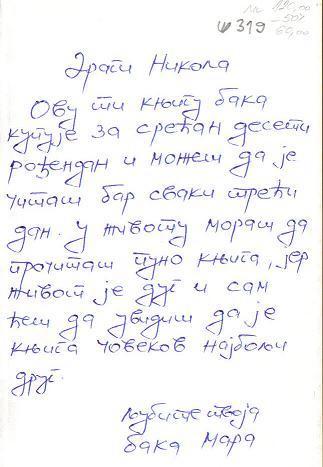 319
Драги Никола
Ову ти књигу бака
купује за срећан десети
рођендан и можеш да је
читаш бар сваки трећи
дан. У животу мораш да
прочиташ пуно књига, јер
живот је дуг и сам
ћеш да увидиш да је
књига човеков најбољи
друг.
љуби те твоја
бака Мара